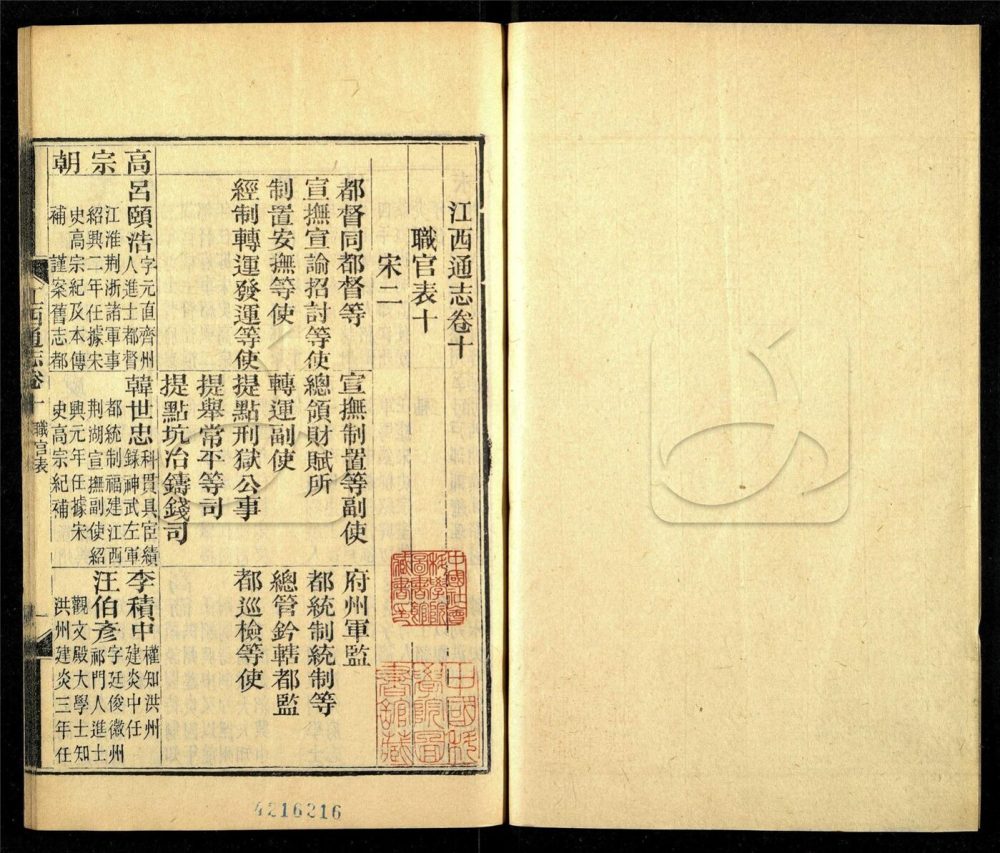 江西通志卷十
職官表十
宋二
都督同都督等
宣撫制置等副使
府州軍監
宣撫宣諭招討等使
總領財賦所
都統制統制等
制置安撫等使
轉運副使
總管鈐轄都監
經制轉運發運等使
提點刑獄公事
都巡檢等使
提舉常平等司
提點坑冶鑄錢司
高宗朝
呂頤浩
字元直齊州
人進士都督
江淮荆浙諸軍事
紹興二年任據宋
史高宗紀及本傳
補 謹案舊志都
韓世忠
科貫具宦績
錄神武左軍
都統制福建江西
荆湖宣撫副使紹
興元年任據宋
史高宗紀補
李積中
權知洪州
建炎中任
汪伯彥
字廷俊徽州
祁門人進士
觀文殿大學士知
洪州建炎三年任
江西通志卷十 職官表 一
中國社會
科學院
圖書館
藏書
中國科
學院圖
書館藏
4216216